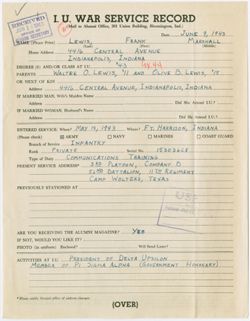 I. U. WAR SERVICE RECORD
(Mail to Alumni Office, 201 Union Building, Bloomington, Ind.)
Date June 9, 1943
NAME (Please Print) Lewis, Frank Marshall
Home Address 4416 Central Avenue
Indianapolis, Indiana
DEGREE(S) AND/OR CLASS AT I.U. '43
PARENTS Walter O. Lewis, '11 and Olive B. Lewis,
OR NEXT OF KIN
Address 4416 Central Avenue, Indianapolis, Indiana
IF MARRIED MAN, Wife's Maiden Name
Address Did She Attend I.U.?
IF MARRIED WOMAN, Husband's Name
Address Did He Attend I.U.?
ENTERED SERVICE: When? May 14, 1943 Where? Ft. Harrison, Indiana
Branch of Service ARMY NAVY MARINES COAST GUARD
Infantry
Rank Private Serial No.
Type of Duty Communications Training
PRESENT ADDRESS 3rd Platoon, Company B
52nd Battalion, 11th Regiment
Camp Wolters, Texas
PREVIOUSLY STATIONED AT
ARE YOU RECEIVING THE ALUMNI MAGAZINE? Yes
IF NOT, WOULD YOU LIKE IT?
To Home Address Overseas? Will Send Later?
ACTIVITIES AT I.U. President of Delta Upsilon
Member of Pi Sigma Alpha (Government Honorary)
(OVER)